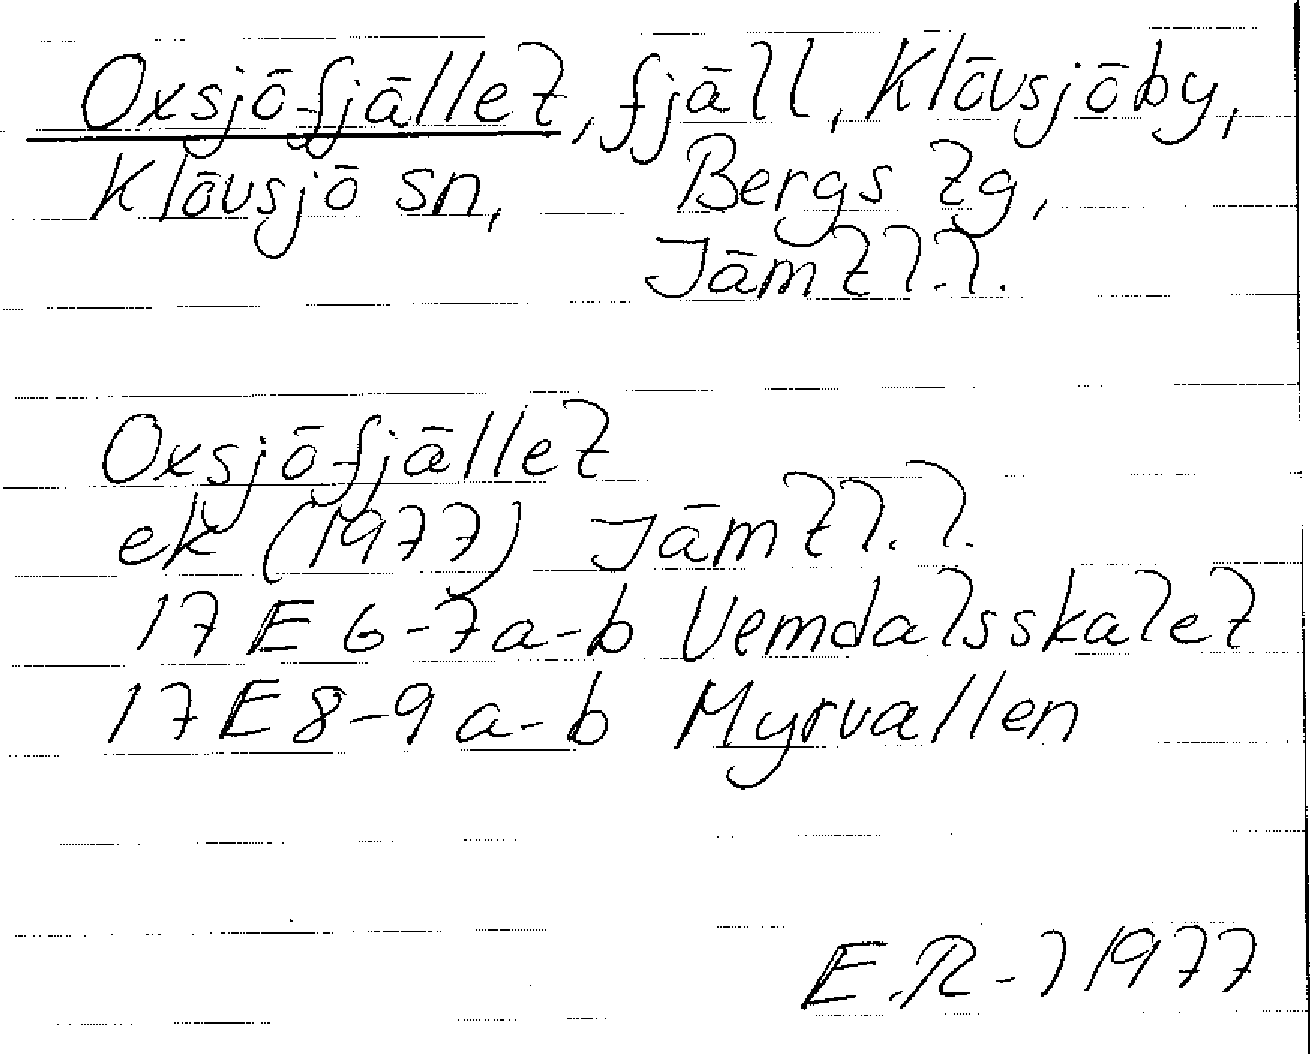 Oxsjöfjället, fjäll, Klövsjöby,
Klövsjö sn, Bergs tg,
Jämtl.l.
Oxsjöfjället
ek (1977) Jämtl.l.
17 E 6-7a-b Vemdalsskalet
17 E 8-9 a-b Myrvallen
E.R-l 1977